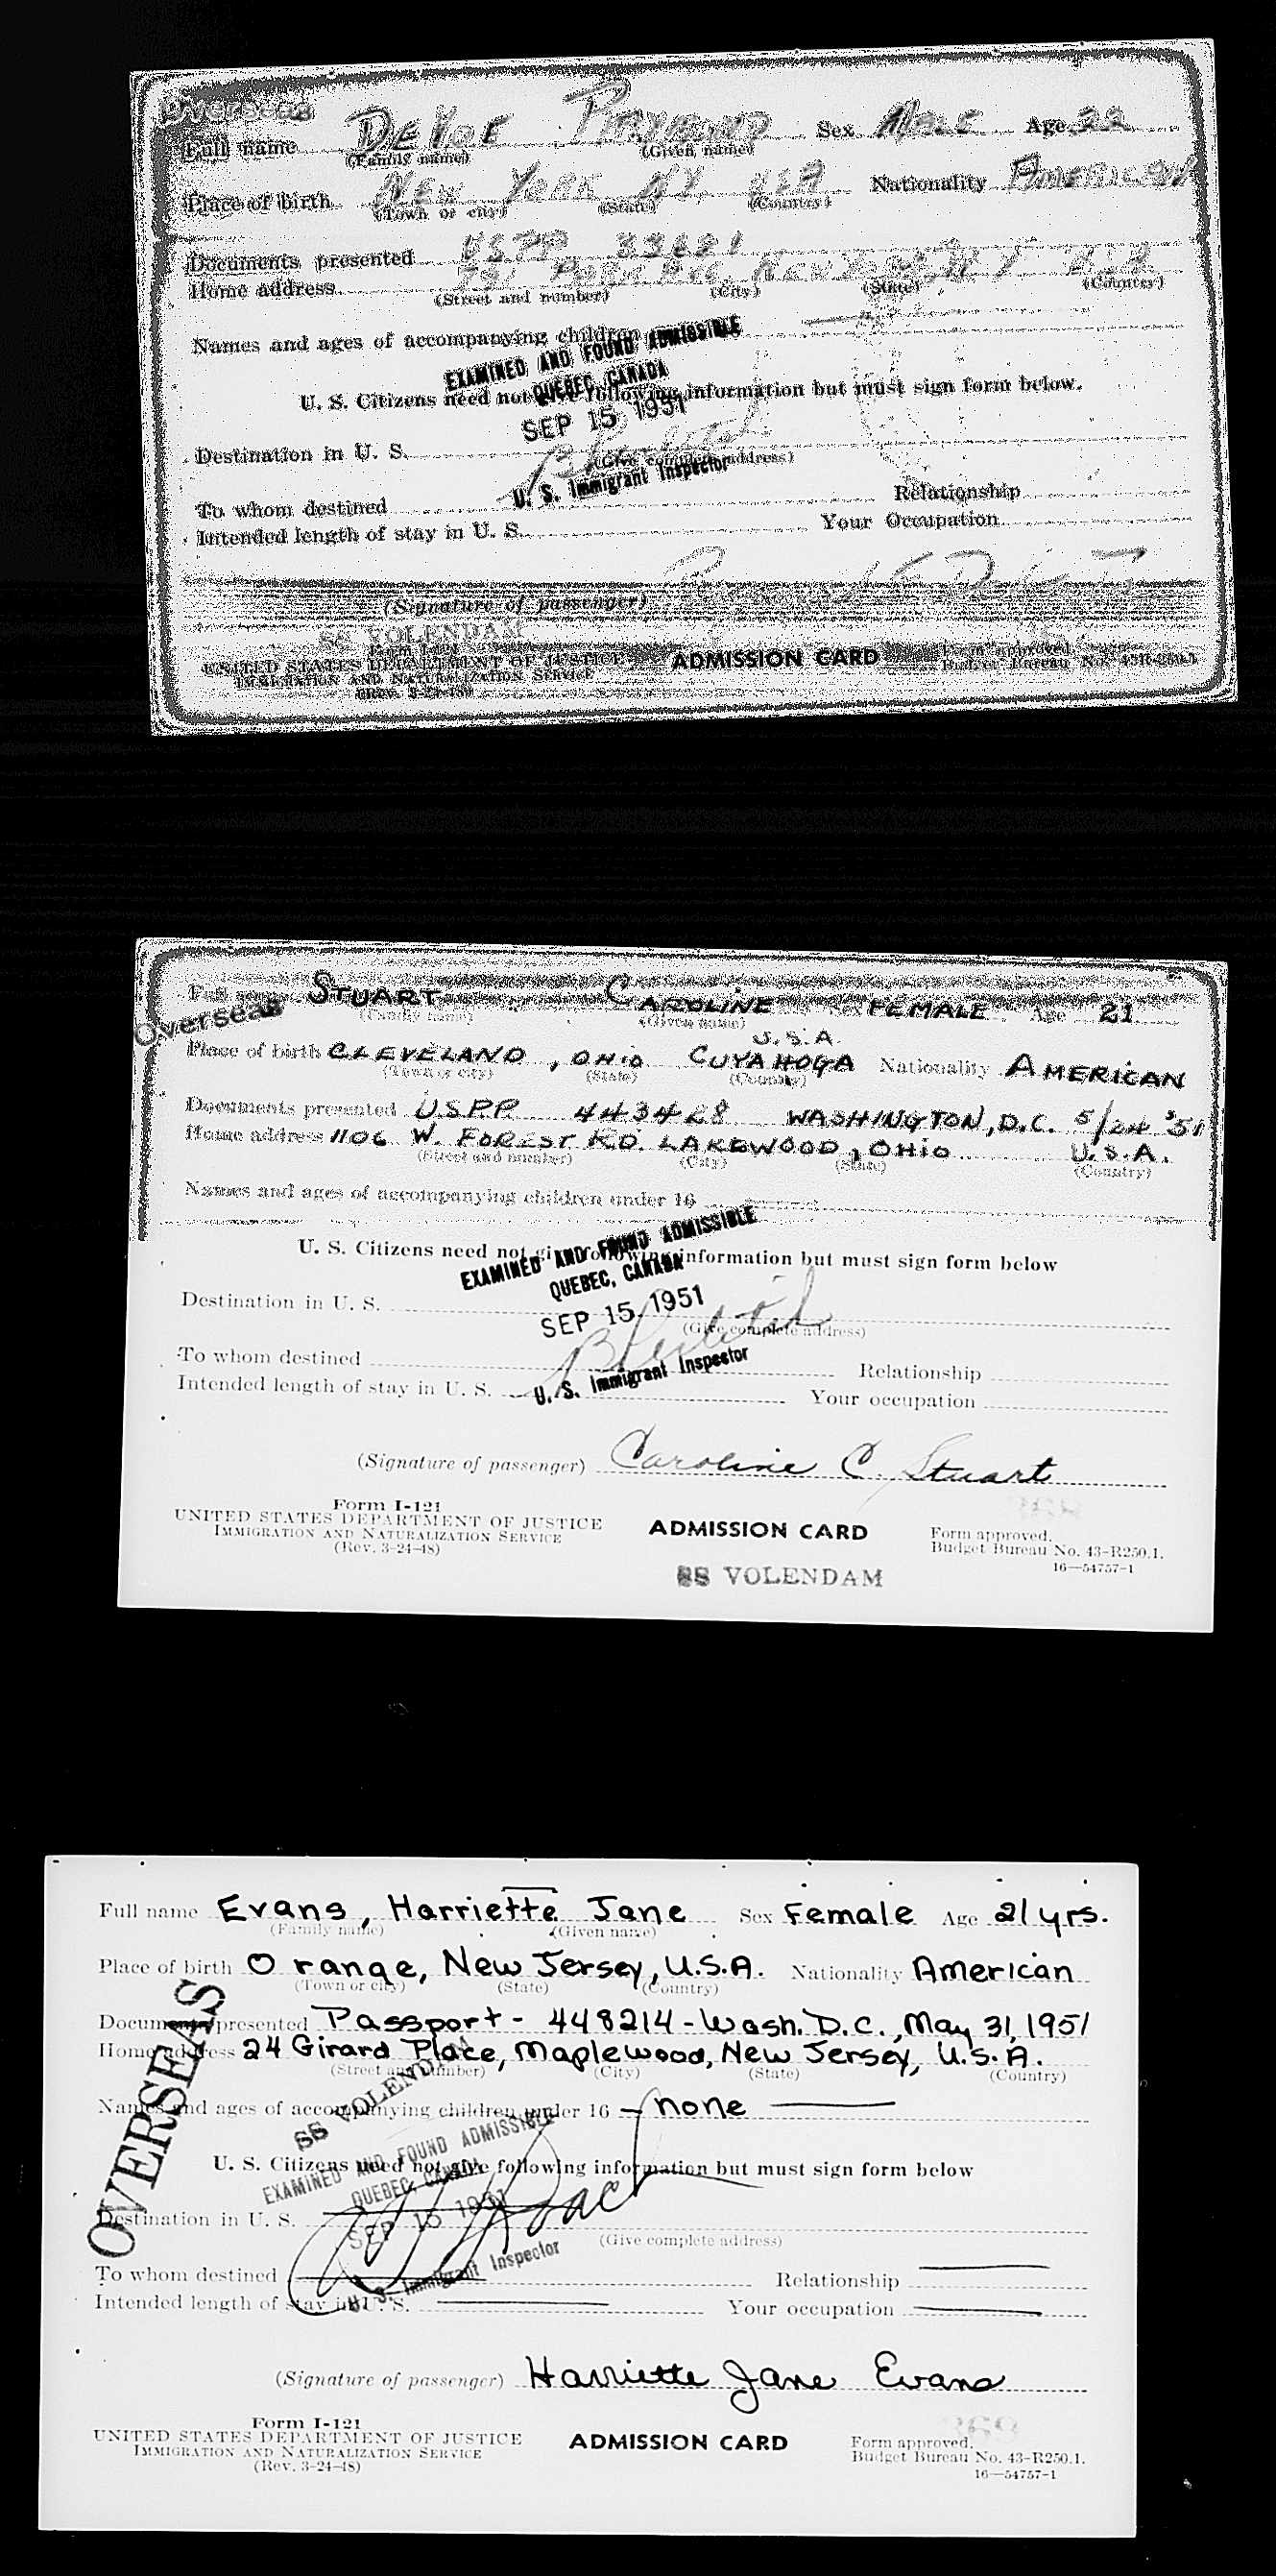 Overseas
Full name DeYoe Raymond Sex Male Age 22
(Family name) (Given name)
Place of birth New York NY USA Nationality American
(Town or city) (State) (Country)
Documents presented USPP 33621
Home address 791 NY
(Street and number) (City) (State) (Country)
Names and ages of accompanying children
EXAMINED AND FOUND ADMISSIBLE
QUEBEC, CANADA
U. S. Citizens need not give following information but must sign form below.
SEP 15 1951
Destination in U. S.
(Give complete address)
U. S. Immigrant Inspector
To whom destined Relationship
Intended length of stay in U. S. Your Occupation
(Signature of passenger)
SS VOLENDAM
Form I-121
UNITED STATES DEPARTMENT OF JUSTICE ADMISSION CARD Form approved.
IMMIGRATION AND NATURALIZATION SERVICE Budget Bureau No. 43-R250.1
(Rev. 3-24-48)
Full name STUART CAROLINE Sex FEMALE Age 21
(Family name) (Given name)
Overseas
U.S.A.
Place of birth CLEVELAND, OHIO CUYAHOGA Nationality AMERICAN
(Town or city) (State) (Country)
Documents presented U.S.P.P. 443428 WASHINGTON, D.C. 5/24 '51
Home address 1106 W. FOREST RD. LAKEWOOD, OHIO U.S.A.
(Street and number) (City) (State) (Country)
Names and ages of accompanying children under 16
U. S. Citizens need not give following information but must sign form below
EXAMINED AND FOUND ADMISSIBLE
QUEBEC, CANADA
SEP 15 1951
Destination in U. S.
(Give complete address)
To whom destined Relationship
U. S. Immigrant Inspector
Intended length of stay in U. S. Your occupation
(Signature of passenger) Caroline C. Stuart
Form I-121
UNITED STATES DEPARTMENT OF JUSTICE
IMMIGRATION AND NATURALIZATION SERVICE
(Rev. 3-24-48)
ADMISSION CARD
Form approved.
Budget Bureau No. 43-R250.1.
16—54757-1
SS VOLENDAM
Full name Evans, Harriette Jane Sex Female Age 21 yrs.
(Family name) (Given name)
Place of birth Orange, New Jersey, U.S.A. Nationality American
(Town or city) (State) (Country)
Documents presented Passport - 448214 - Wash. D.C., May 31, 1951
Home address 24 Girard Place, Maplewood, New Jersey, U.S.A.
(Street and number) (City) (State) (Country)
OVERSEAS
SS VOLENDAM
Names and ages of accompanying children under 16 — none —
EXAMINED AND FOUND ADMISSIBLE
U. S. Citizens need not give following information but must sign form below
QUEBEC, CANADA
SEP 15 1951
Destination in U. S.
(Give complete address)
U. S. Immigrant Inspector
To whom destined Relationship
Intended length of stay in U. S. Your occupation
(Signature of passenger) Harriette Jane Evans
Form I-121
UNITED STATES DEPARTMENT OF JUSTICE
IMMIGRATION AND NATURALIZATION SERVICE
(Rev. 3-24-48)
ADMISSION CARD
369
Form approved.
Budget Bureau No. 43-R250.1.
16—54757-1